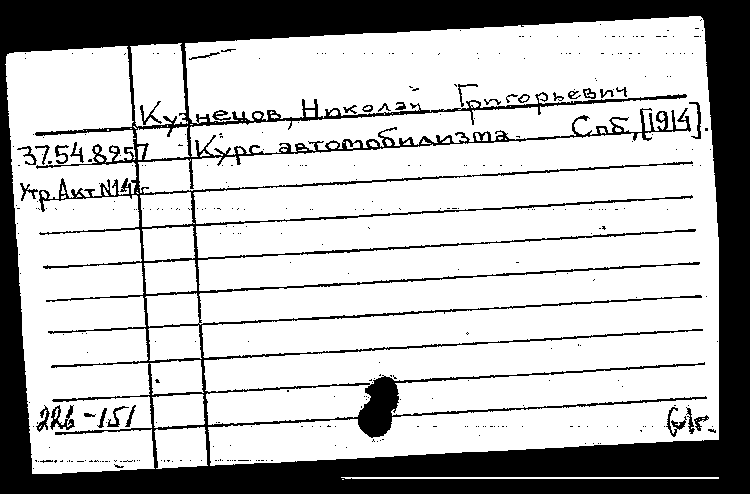 Кузнецов, Николай Григорьевич
37.54.8257 Курс автомобилизма. Спб, [1914].
Утр. Акт N147г.
226-151